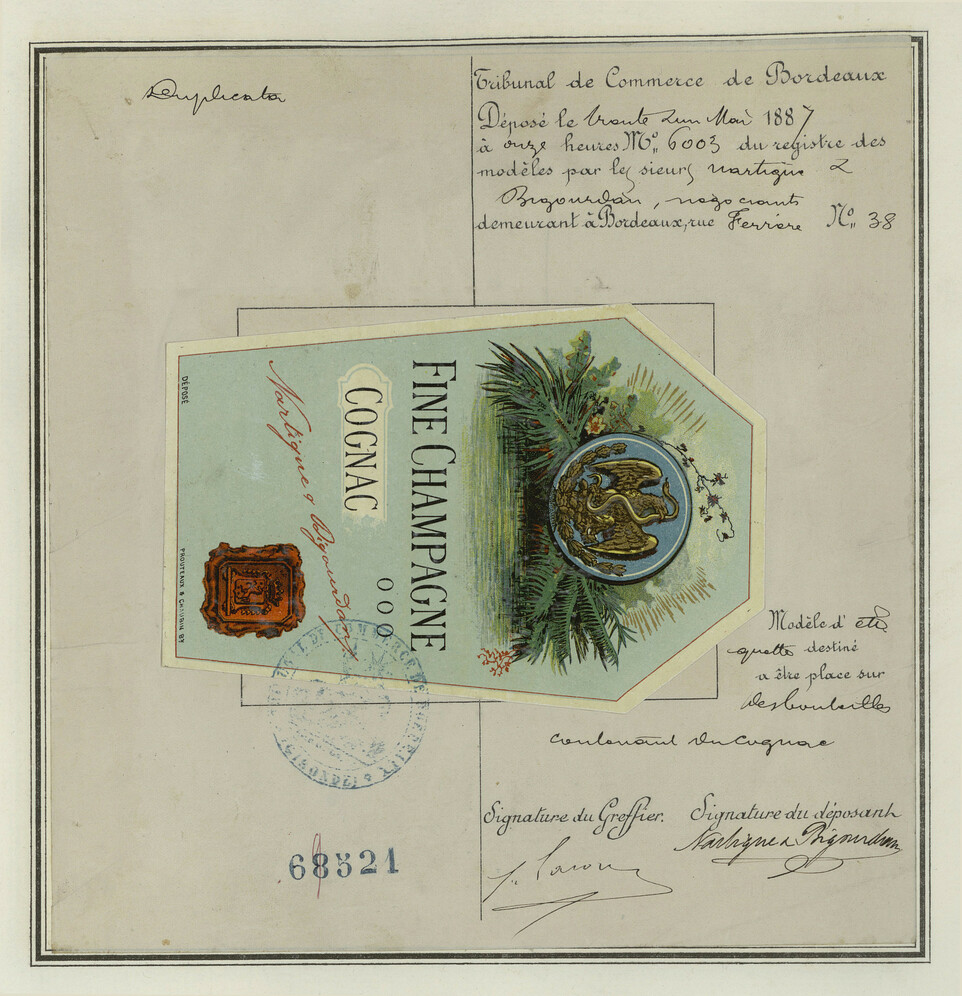 Duplicata
Tribunal de Commerce de Bordeaux
Déposé le trente un Mai 1887
à onze heures No. 6003 du registre des
modèles par les sieurs Nartigue &
Bigourdan, négociants
demeurant à Bordeaux, rue Ferrère No. 38
FINE CHAMPAGNE
COGNAC
000
Nartigue & Bigourdan
DÉPOSÉ
PROUTEAUX & CHAUVIN BX
Modèle d'éti
quette destiné
a être place sur
des bouteilles
contenant du cognac
TRIBUNAL DE COMMERCE DE BORDEAUX
(GIRONDE)
Signature du Greffier.
Signature du déposant
Nartigue & Bigourdan
68521